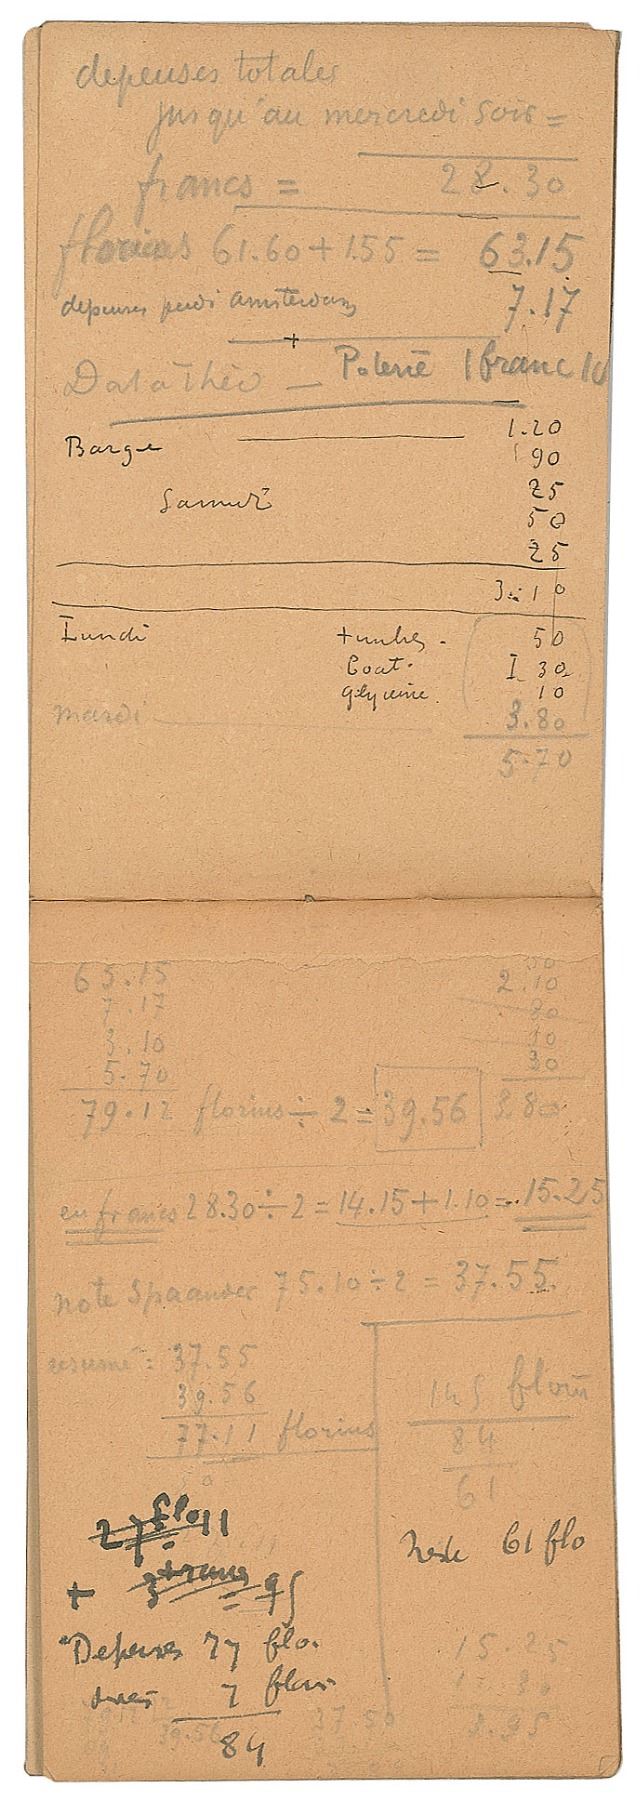 depenses totales
jusqu'au mercredi soir =
francs = 28.30
florins 61.60 + 1.55 = 63.15
depenses jeudi Amsterdam 7.17
+
Dat à Théo — Poterie 1 franc 10
Barge 1.20
90
Samedi 25
50
25
3.10
Lundi timbres. 50
Boat. I 30
glycine. 10
mardi 3.80
5.70
63.15
7.17
3.10
5.70
79.12 florins ÷ 2 = 39.56
50
2.10
80
10
30
2 80
en francs 28.30 ÷ 2 = 14.15 + 1.10 = 15.25
note Spaander 75.10 ÷ 2 = 37.55
resumé : 37.55
39.56
77.11 florins
145 florin
84
61
flo
27.11
reste 61 flo
+ 3 francs = 95
Depenses 77 flo.
7 flor
84
15.25
39.56 37.50